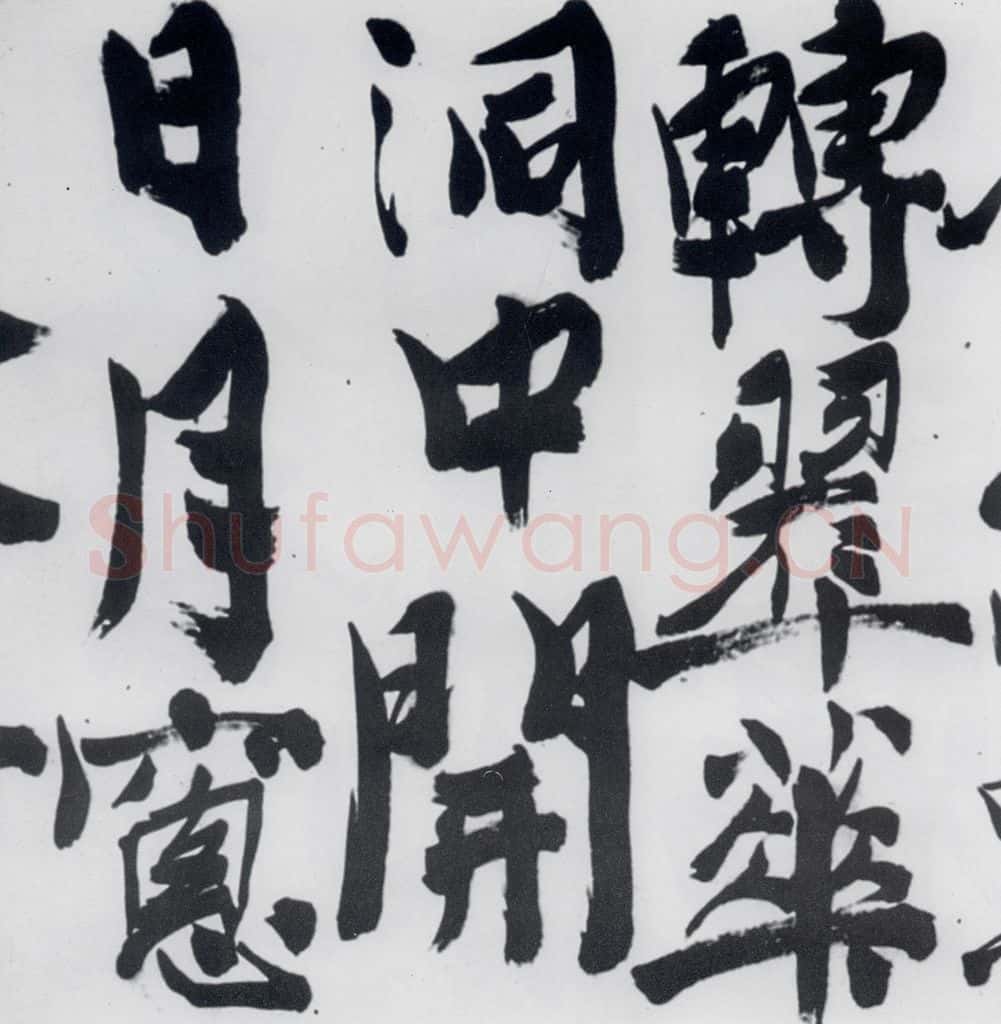 轉翠華
洞中開
日月窻
Shufawang.CN